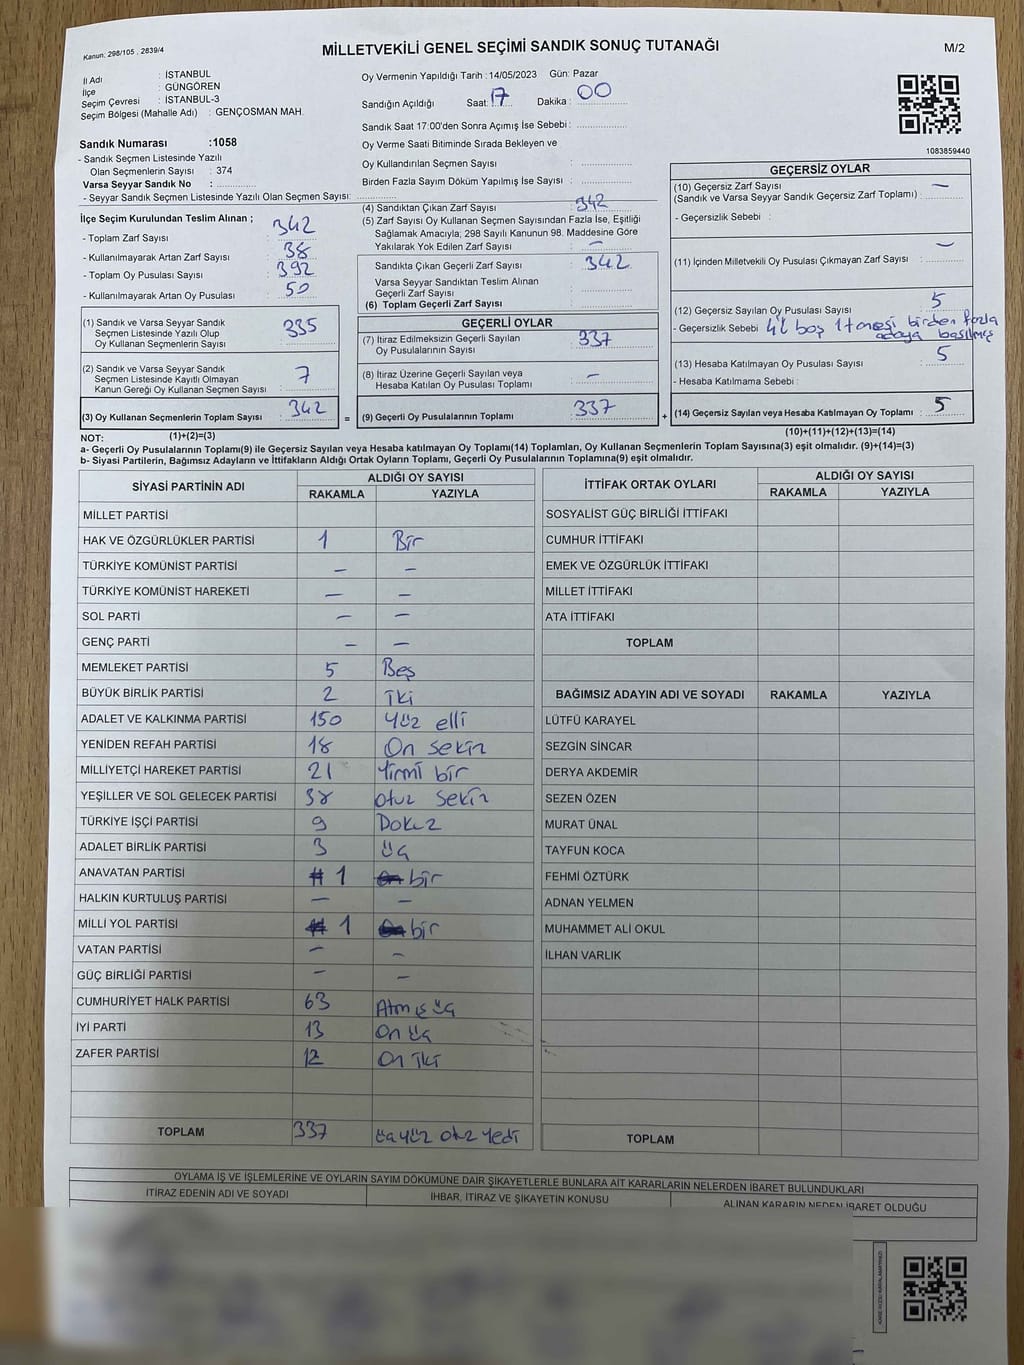 Kanun: 298/105 , 2839/4
MİLLETVEKİLİ GENEL SEÇİMİ SANDIK SONUÇ TUTANAĞI
M/2
İl Adı : İSTANBUL
İlçe : GÜNGÖREN
Seçim Çevresi : İSTANBUL-3
Seçim Bölgesi (Mahalle Adı) : GENÇOSMAN MAH.
Oy Vermenin Yapıldığı Tarih : 14/05/2023 Gün: Pazar
Sandığın Açıldığı Saat: 17 Dakika : 00
Sandık Saat 17:00'den Sonra Açımış İse Sebebi :
Oy Verme Saati Bitiminde Sırada Bekleyen ve
Oy Kullandırılan Seçmen Sayısı :
Birden Fazla Sayım Döküm Yapılmış İse Sayısı :
1083859440
Sandık Numarası :1058
- Sandık Seçmen Listesinde Yazılı
Olan Seçmenlerin Sayısı : 374
Varsa Seyyar Sandık No :
- Seyyar Sandık Seçmen Listesinde Yazılı Olan Seçmen Sayısı:
İlçe Seçim Kurulundan Teslim Alınan ;
- Toplam Zarf Sayısı : 342
- Kullanılmayarak Artan Zarf Sayısı : 38
- Toplam Oy Pusulası Sayısı : 392
- Kullanılmayarak Artan Oy Pusulası : 50
(1) Sandık ve Varsa Seyyar Sandık
Seçmen Listesinde Yazılı Olup
Oy Kullanan Seçmenlerin Sayısı : 335
(2) Sandık ve Varsa Seyyar Sandık
Seçmen Listesinde Kayıtlı Olmayan
Kanun Gereği Oy Kullanan Seçmen Sayısı : 7
(3) Oy Kullanan Seçmenlerin Toplam Sayısı : 342
(4) Sandıktan Çıkan Zarf Sayısı : 342
(5) Zarf Sayısı Oy Kullanan Seçmen Sayısından Fazla İse, Eşitliği
Sağlamak Amacıyla; 298 Sayılı Kanunun 98. Maddesine Göre
Yakılarak Yok Edilen Zarf Sayısı : —
Sandıkta Çıkan Geçerli Zarf Sayısı : 342
Varsa Seyyar Sandıktan Teslim Alınan
Geçerli Zarf Sayısı :
(6) Toplam Geçerli Zarf Sayısı :
GEÇERLİ OYLAR
(7) İtiraz Edilmeksizin Geçerli Sayılan
Oy Pusulalarının Sayısı : 337
(8) İtiraz Üzerine Geçerli Sayılan veya
Hesaba Katılan Oy Pusulası Toplamı : —
= (9) Geçerli Oy Pusulalarının Toplamı : 337
GEÇERSİZ OYLAR
(10) Geçersiz Zarf Sayısı —
(Sandık ve Varsa Seyyar Sandık Geçersiz Zarf Toplamı) :
- Geçersizlik Sebebi :
(11) İçinden Milletvekili Oy Pusulası Çıkmayan Zarf Sayısı : —
(12) Geçersiz Sayılan Oy Pusulası Sayısı : 5
- Geçersizlik Sebebi boş 1 tanesi birden fazla
adaya basılmış
(13) Hesaba Katılmayan Oy Sayısı : 5
- Hesaba Katılmama Sebebi :
+ (14) Geçersiz Sayılan veya Hesaba Katılmayan Oy Toplamı : 5
NOT: (1)+(2)=(3)
(10)+(11)+(12)+(13)=(14)
a- Geçerli Oy Pusulalarının Toplamı(9) ile Geçersiz Sayılan veya Hesaba katılmayan Oy Toplamı(14) Toplamları, Oy Kullanan Seçmenlerin Toplam Sayısına(3) eşit olmalıdır. (9)+(14)=(3)
b- Siyasi Partilerin, Bağımsız Adayların ve İttifakların Aldığı Ortak Oyların Toplamı, Geçerli Oy Pusulalarının Toplamına(9) eşit olmalıdır.
SİYASİ PARTİNİN ADI ALDIĞI OY SAYISI
RAKAMLA YAZIYLA
MİLLET PARTİSİ
HAK VE ÖZGÜRLÜKLER PARTİSİ 1 Bir
TÜRKİYE KOMÜNİST PARTİSİ — —
TÜRKİYE KOMÜNİST HAREKETİ — —
SOL PARTİ — —
GENÇ PARTİ — —
MEMLEKET PARTİSİ 5 Beş
BÜYÜK BİRLİK PARTİSİ 2 İki
ADALET VE KALKINMA PARTİSİ 150 Yüz elli
YENİDEN REFAH PARTİSİ 18 On sekiz
MİLLİYETÇİ HAREKET PARTİSİ 21 Yirmi bir
YEŞİLLER VE SOL GELECEK PARTİSİ 38 otuz sekiz
TÜRKİYE İŞÇİ PARTİSİ 9 Dokuz
ADALET BİRLİK PARTİSİ 3 üç
ANAVATAN PARTİSİ 1 bir
HALKIN KURTULUŞ PARTİSİ — —
MİLLİ YOL PARTİSİ 1 bir
VATAN PARTİSİ — —
GÜÇ BİRLİĞİ PARTİSİ — —
CUMHURİYET HALK PARTİSİ 63 Atmış üç
İYİ PARTİ 13 On üç
ZAFER PARTİSİ 12 On iki
TOPLAM 337 üç yüz otuz yedi
İTTİFAK ORTAK OYLARI ALDIĞI OY SAYISI
RAKAMLA YAZIYLA
SOSYALİST GÜÇ BİRLİĞİ İTTİFAKI
CUMHUR İTTİFAKI
EMEK VE ÖZGÜRLÜK İTTİFAKI
MİLLET İTTİFAKI
ATA İTTİFAKI
TOPLAM
BAĞIMSIZ ADAYIN ADI VE SOYADI RAKAMLA YAZIYLA
LÜTFÜ KARAYEL
SEZGİN SİNCAR
DERYA AKDEMİR
SEZEN ÖZEN
MURAT ÜNAL
TAYFUN KOCA
FEHMİ ÖZTÜRK
ADNAN YELMEN
MUHAMMET ALİ OKUL
İLHAN VARLIK
TOPLAM
OYLAMA İŞ VE İŞLEMLERİNE VE OYLARIN SAYIM DÖKÜMÜNE DAİR ŞİKAYETLERLE BUNLARA AİT KARARLARIN NELERDEN İBARET BULUNDUKLARI
İTİRAZ EDENİN ADI VE SOYADI
İHBAR, İTİRAZ VE ŞİKAYETİN KONUSU
ALINAN KARARIN NEDEN İBARET OLDUĞU